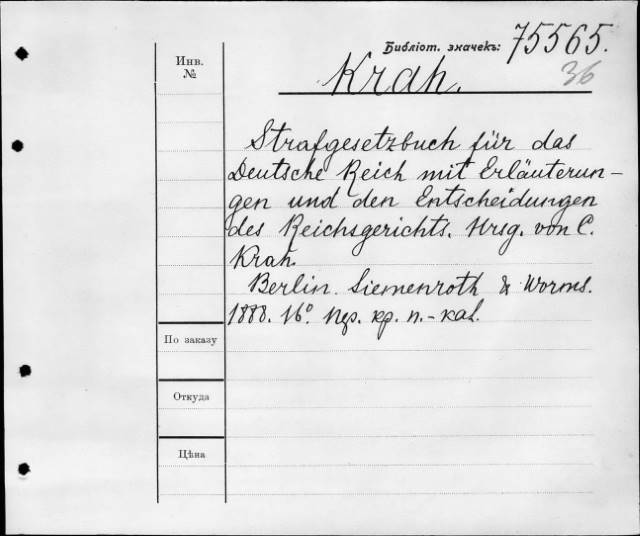 Библіот. значекъ: 75565.
36
Инв.
№
Krah.
Strafgesetzbuch für das
Deutsche Reich mit Erläuterun-
gen und den Entscheidungen
des Reichsgerichts. Hrsg. von C.
Krah.
Berlin. Siemenroth & Worms.
1888. 16° пер. кр. п.-кал.
По заказу
Откуда
Цѣна